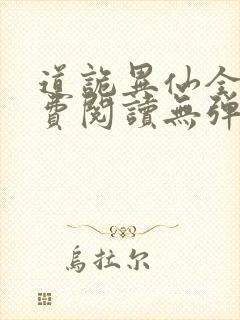 道詭異仙全
費閱讀無彈
烏拉尔